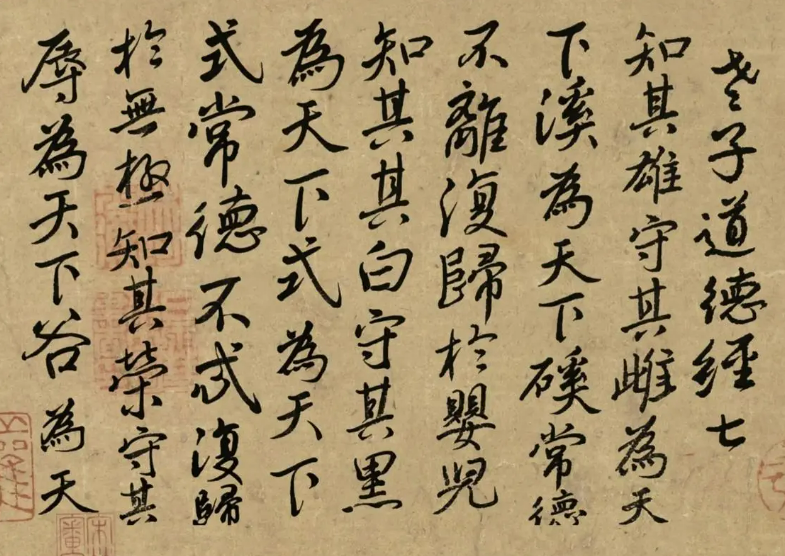 老子道德經七
知其雄守其雌為天
下溪為天下磎常德
不離復歸於嬰兒
知其其白守其黑
為天下式為天下
式常德不忒復歸
於無極知其榮守其
辱為天下谷為天